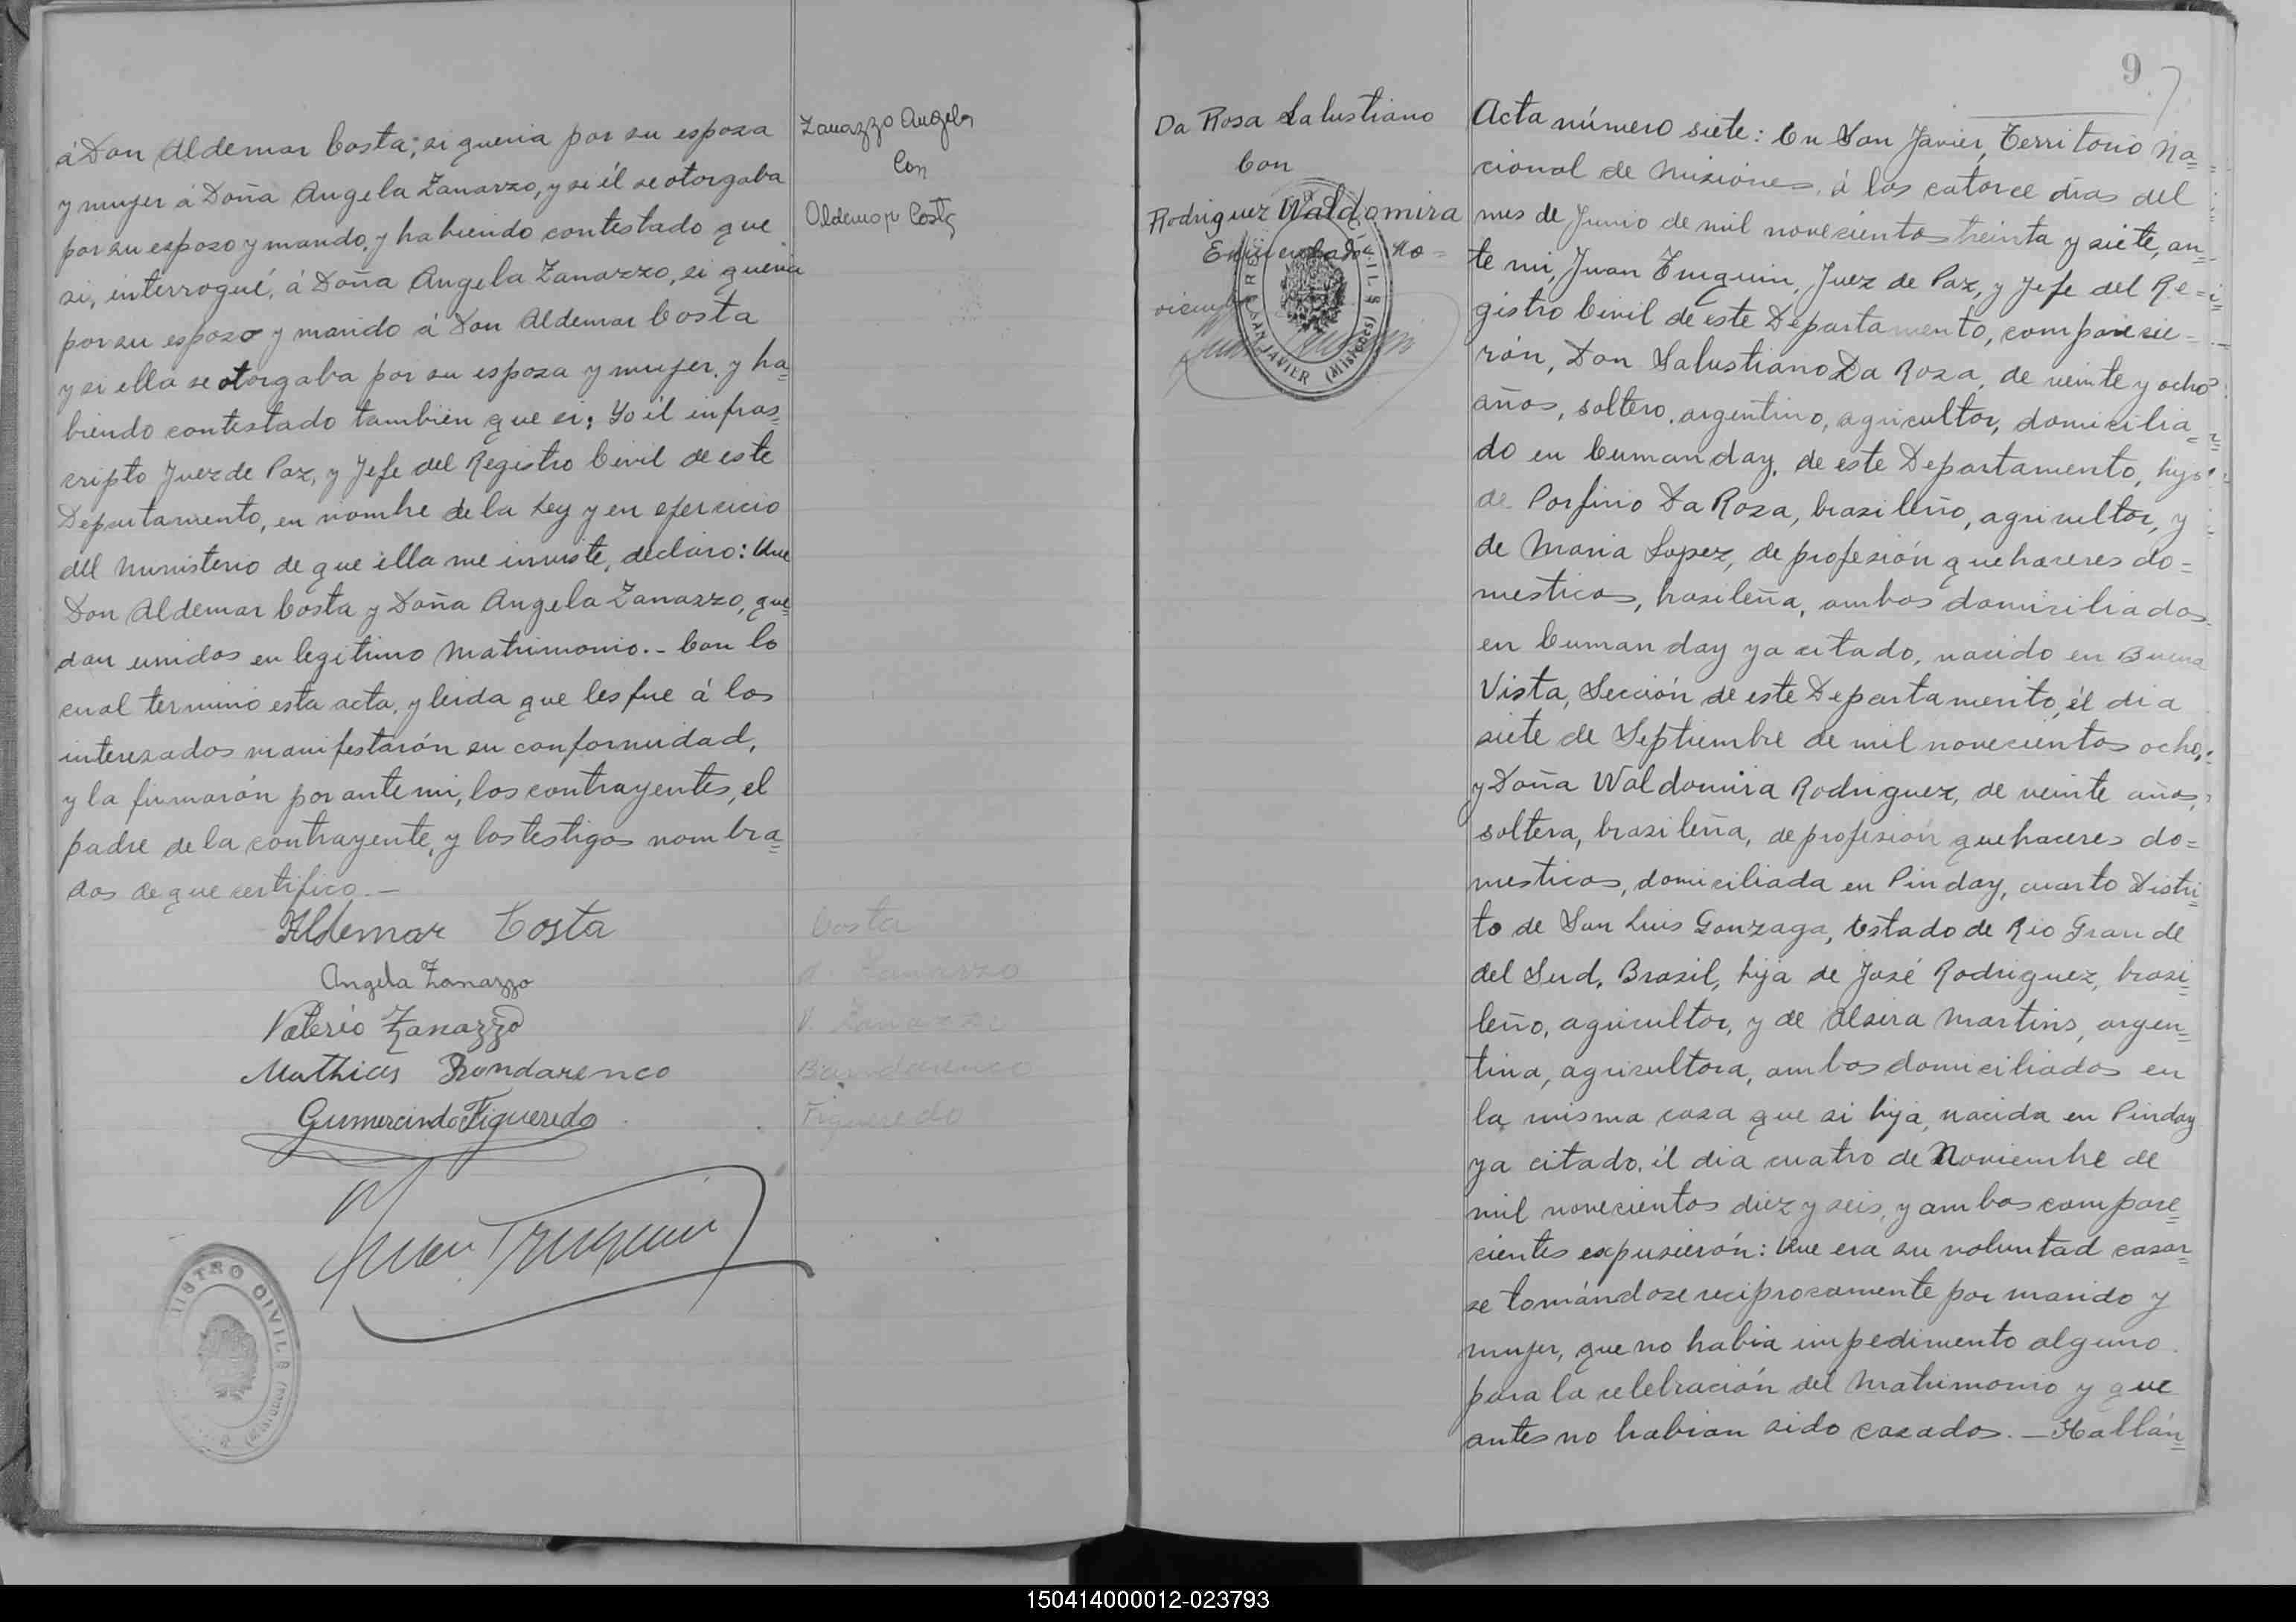 á Don Aldemar Costa; si queria por su esposa
y mujer á Doña Angela Zanazzo, y si él se otorgaba
por su esposo y marido, y habiendo contestado que
si, interrogué, á Doña Angela Zanazzo, si queria
por su esposo y marido á Don Aldemar Costa
y si ella se otorgaba por su esposa y mujer, y ha=
biendo contestado también que si; Yo él infras=
cripto Juez de Paz, y Jefe del Registro Civil de este
Departamento, en nombre de la Ley y en ejercicio
del ministerio de que ella me inviste, declaro: Que
Don Aldemar Costa y Doña Angela Zanazzo, que=
dan unidos en legitimo Matrimonio.- Con lo
cual terminó esta acta, y leida que les fue á los
interezados manifestarón su conformidad,
y la firmarón por ante mi, los contrayentes, el
padre de la contrayente, y los testigos nombra=
dos de que certifico.—
Aldemar Costa
Angela Zanazzo
Valerio Zanazzo
Mathias Bondarenco
Gumercindo Figueredo
Juan Truquin
Zanazzo Angela
Con
Aldemar Costa
Costa
A. Zanazzo
V. Zanazzo
Bondarenco
Figueredo
REGISTRO CIVIL
(Misiones)
9
7
Da Rosa Salustiano
Con
Rodriguez Waldomira
Enmendado no=
viembre
SAN JAVIER (Misiones)
Acta número siete: En San Javier, Territorio Na=
cional de Misiones, á los catorce dias del
mes de Junio de mil novecientos treinta y siete, an=
te mi, Juan Truquin, Juez de Paz, y Jefe del Re=
gistro Civil de este Departamento, comparecie=
rón, Don Salustiano Da Roza, de veinte y ocho
años, soltero, argentino, agricultor, domicilia=
do en Cumanday, de este Departamento, hijo
de Porfirio Da Roza, brazileño, agricultor, y
de Maria Lopez, de profesión quehaceres do=
mesticos, brasileña, ambos domiciliados
en Cumanday ya citado, nacido en Buena
Vista, Sección de este Departamento, él dia
siete de Septiembre de mil novecientos ocho,
y Doña Waldomira Rodriguez, de veinte años,
soltera, brazileña, de profesión quehaceres do=
mesticos, domiciliada en Pinday, cuarto Distri=
to de San Luis Gonzaga, Estado de Rio Grande
del Sud, Brasil, hija de José Rodriguez, brasi=
leño, agricultor, y de Alsira Martins, argen=
tina, agricultora, ambos domiciliados en
la misma casa que si hija, nacida en Pinday
ya citado, él dia cuatro de Noviembre de
mil novecientos diez y seis, y ambos compare=
cientes expusierón: Que era su voluntad casar=
se tomándose reciprocamente por marido y
mujer, que no habia impedimento alguno
para la celebración del Matrimonio y que
antes no habian sido casados.—Hallán=
150414000012-023793